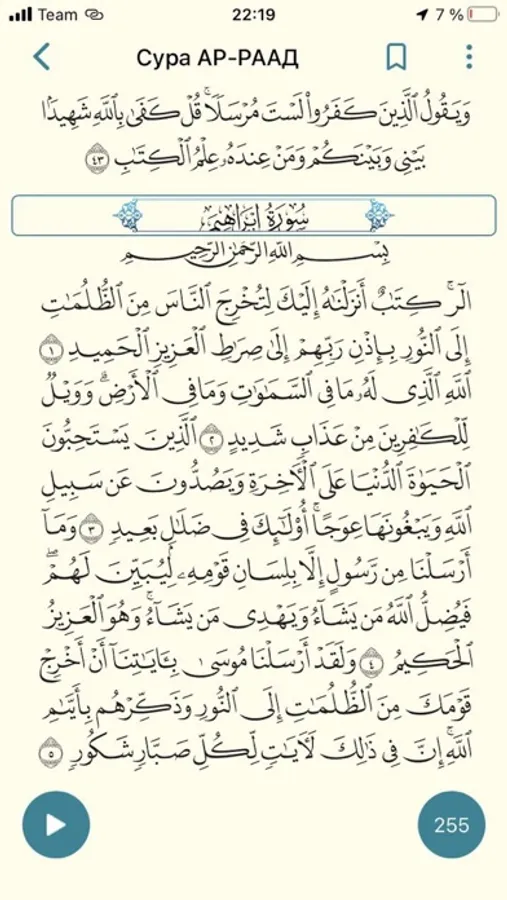 Team 22:19 7 %
Сура АР-РААД
وَيَقُولُ الَّذِينَ كَفَرُوا۟ لَسْتَ مُرْسَلًا ۚ قُلْ كَفَىٰ بِاللَّهِ شَهِيدًۢا
بَيْنِى وَبَيْنَكُمْ وَمَنْ عِندَهُۥ عِلْمُ الْكِتَٰبِ ٤٣
سُورَةُ إِبْرَاهِيمَ
بِسْمِ اللَّهِ الرَّحْمَٰنِ الرَّحِيمِ
الٓر ۚ كِتَٰبٌ أَنزَلْنَٰهُ إِلَيْكَ لِتُخْرِجَ النَّاسَ مِنَ الظُّلُمَٰتِ
إِلَى النُّورِ بِإِذْنِ رَبِّهِمْ إِلَىٰ صِرَٰطِ الْعَزِيزِ الْحَمِيدِ ١
اللَّهِ الَّذِى لَهُۥ مَا فِى السَّمَٰوَٰتِ وَمَا فِى الْأَرْضِ ۗ وَوَيْلٌ
لِّلْكَٰفِرِينَ مِنْ عَذَابٍ شَدِيدٍ ٢ الَّذِينَ يَسْتَحِبُّونَ
الْحَيَوٰةَ الدُّنْيَا عَلَى الْءَاخِرَةِ وَيَصُدُّونَ عَن سَبِيلِ
اللَّهِ وَيَبْغُونَهَا عِوَجًا ۚ أُو۟لَٰٓئِكَ فِى ضَلَٰلٍۭ بَعِيدٍ ٣ وَمَآ
أَرْسَلْنَا مِن رَّسُولٍ إِلَّا بِلِسَانِ قَوْمِهِۦ لِيُبَيِّنَ لَهُمْ ۖ
فَيُضِلُّ اللَّهُ مَن يَشَآءُ وَيَهْدِى مَن يَشَآءُ ۚ وَهُوَ الْعَزِيزُ
الْحَكِيمُ ٤ وَلَقَدْ أَرْسَلْنَا مُوسَىٰ بِـَٔايَٰتِنَآ أَنْ أَخْرِجْ
قَوْمَكَ مِنَ الظُّلُمَٰتِ إِلَى النُّورِ وَذَكِّرْهُم بِأَيَّىٰمِ
اللَّهِ ۚ إِنَّ فِى ذَٰلِكَ لَءَايَٰتٍ لِّكُلِّ صَبَّارٍ شَكُورٍ ٥
255